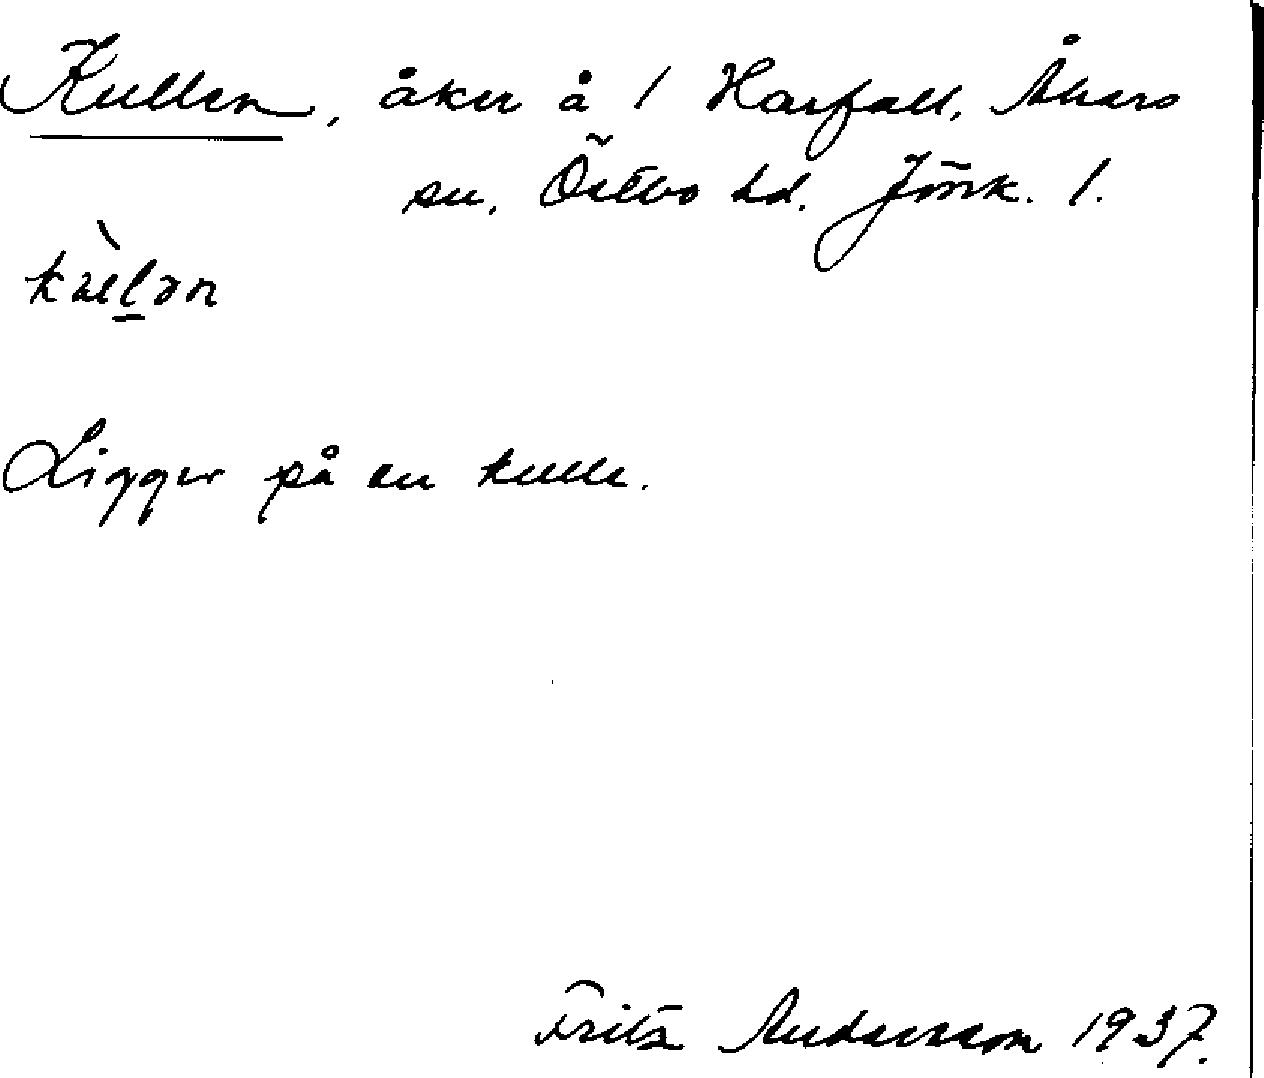 Kullen, åker å 1 Harfall, Åkers
sn, Östbo hd. Jönk. l.
kullən
Ligger på en kulle.
Fritz Andersson 1937.